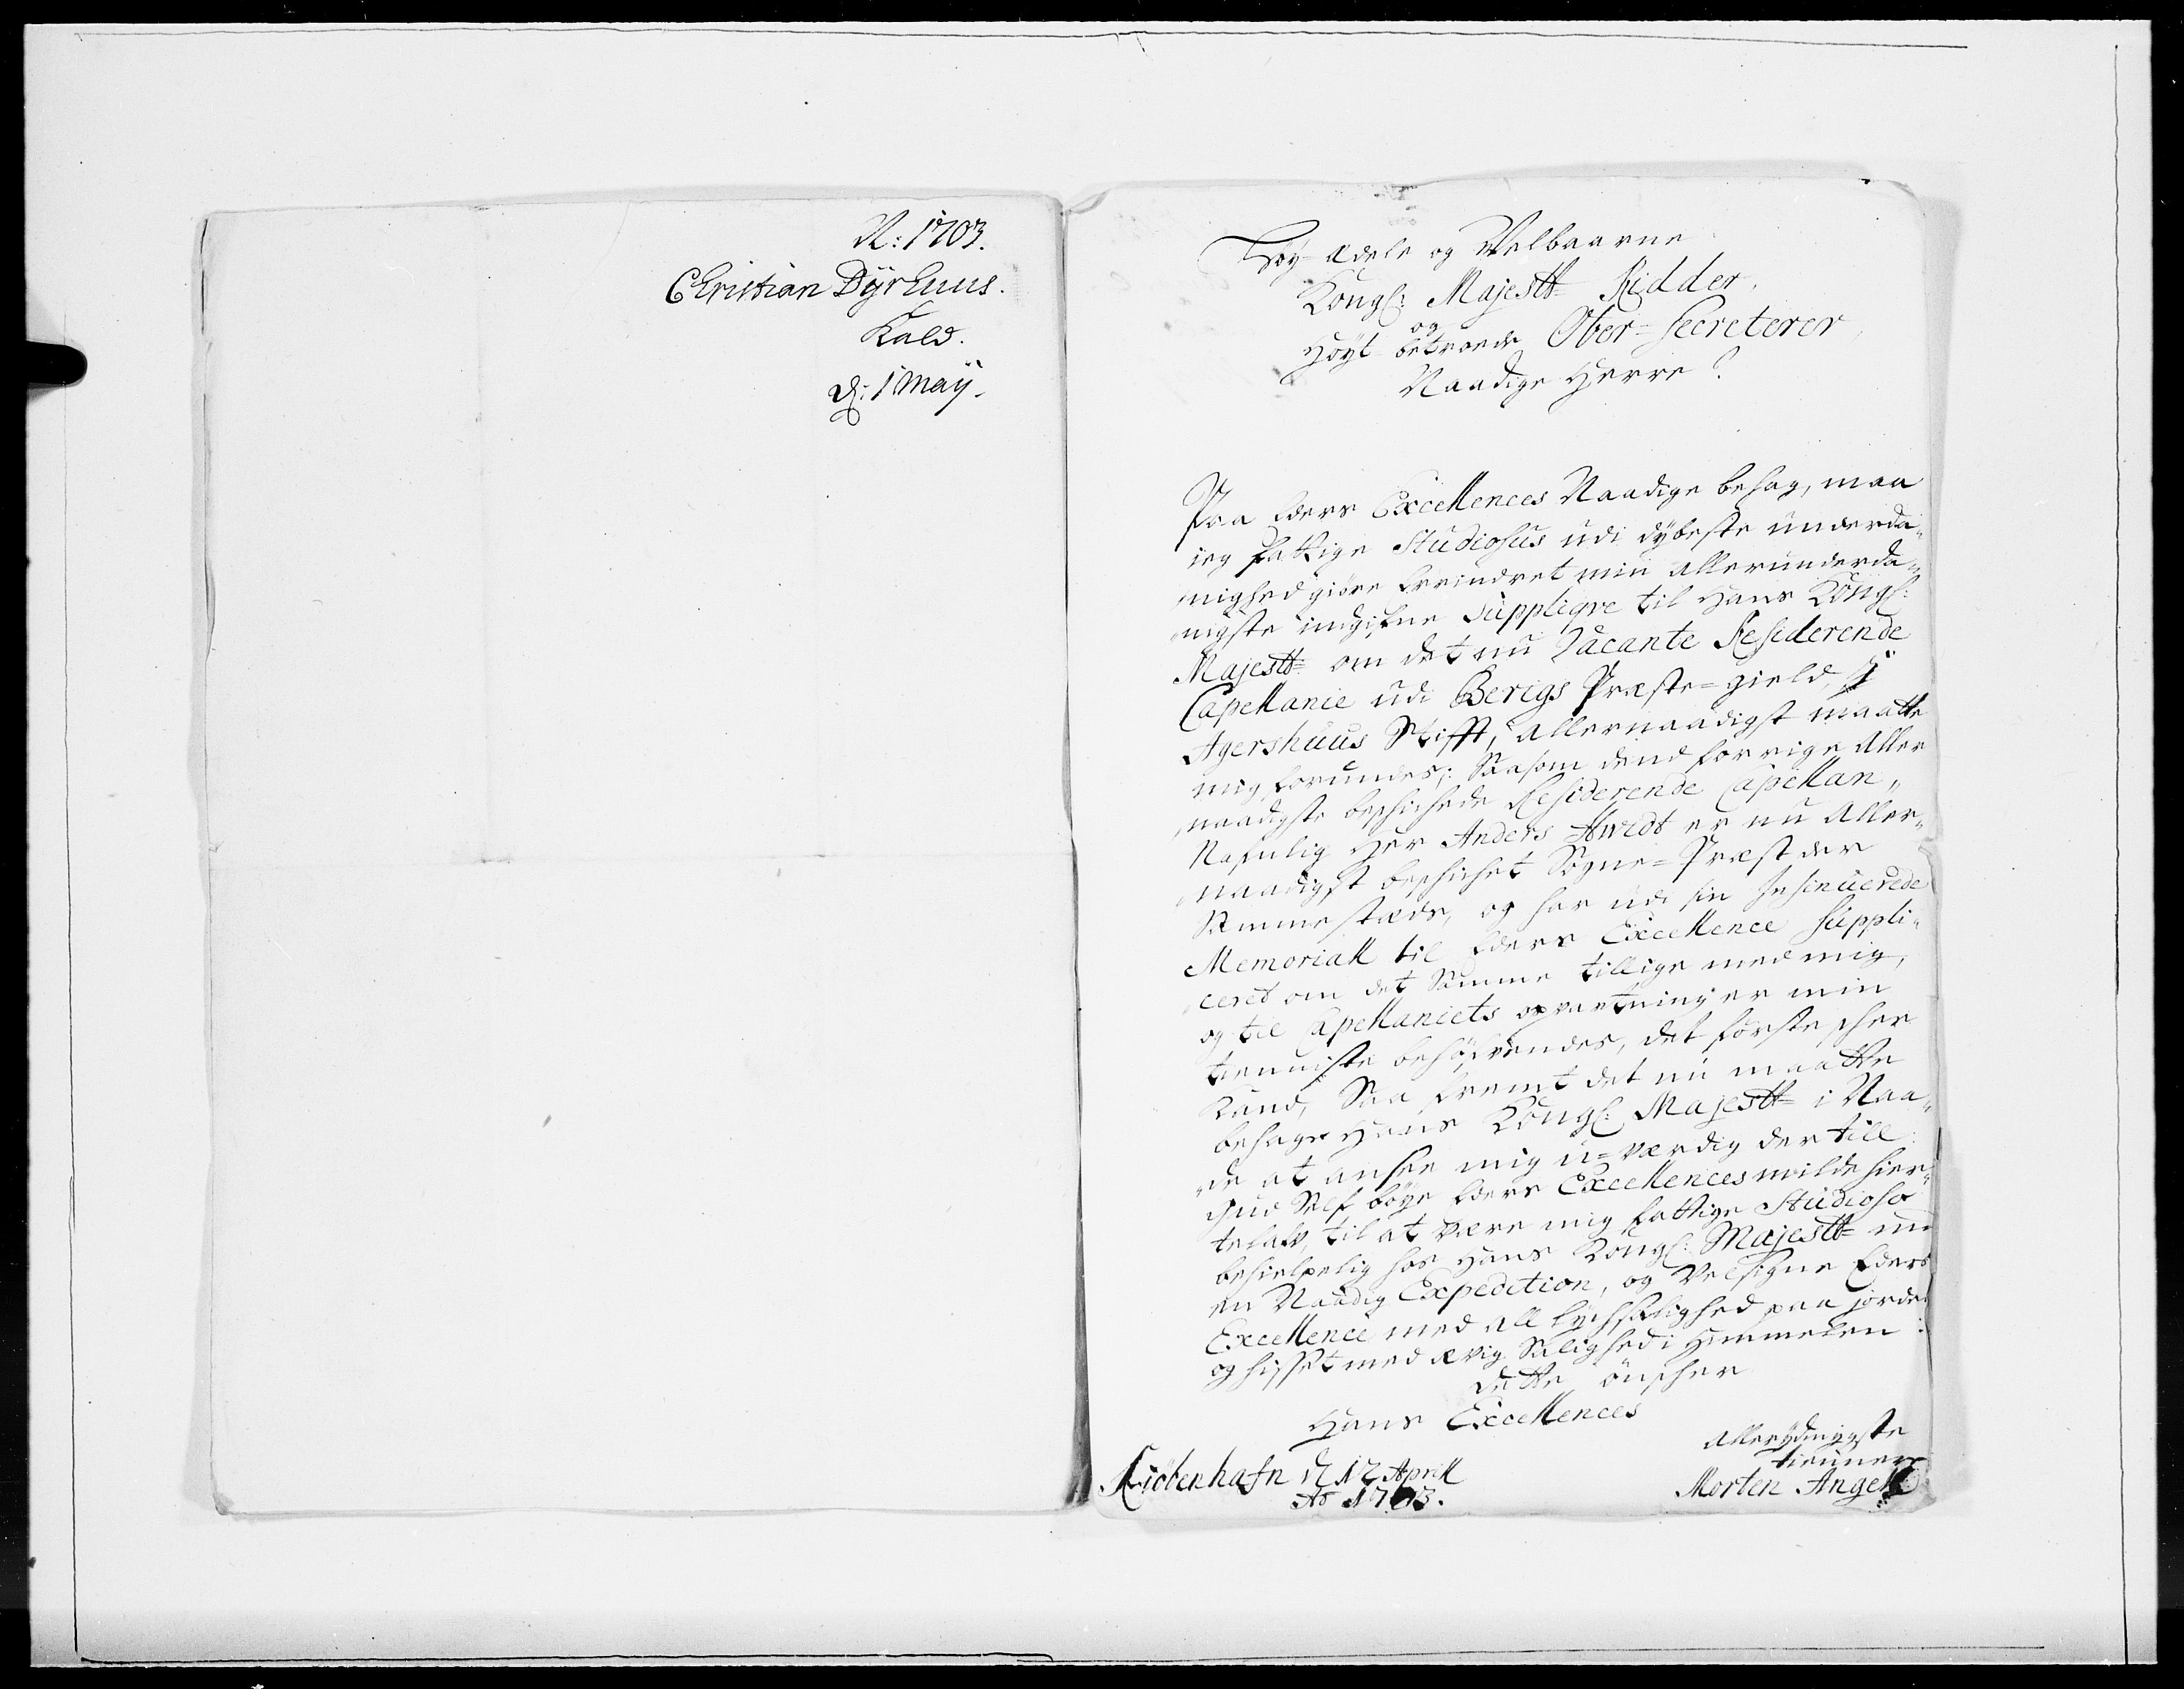 N: 1703.
Christian Dyrhuus.
Kald.
d: 1 May.
Høy ædele og Velbaarne
Kongl: Majestt= Ridder,
og
Høyt betroede Ober=Secreterer
Naadige Herre?
Paa Eders Excellences Naadige behag, maa
ieg fattige Studiosus udi dybeste underda„
nighed giøre Erindret min allerunderda„
nigste indgifne Suppliqve til Hans Kongl:
Majestt= om det nu Vacante Residerende
Capellanie udi Berigs Præste=gield, I
Agershuus Stifft, allernaadigst maatte
mig forundes; Saasom dend forrige Aller
naadigste beschichede Residerende Capellan„
Nafnlig Her Anders Hwidt er nu Aller„
naadigst beschichet Sogne=Præst der
Sammestæds, og har udi sin Insinuerede
Memoriall til Eders Excellence Suppli„
cerit om det Samme tillige med mig,
og til Capellaniets opvartning er min
tienniste behøfvendes, det første schee
Kand, Saa fremt det nu maatte
behage Hans Kongl: Majestt= i Naa„
de at ansee mig u=værdig der till:
Gud Self bøye Eders Excellences milde hier„
telav, til at være mig fattige Studioso
behielpelig hos Hans Kongl: Majestt= um
en Naadig Expedition, og Velsigne Eders
Excellence med all lychsalighed paa jorden
og hisset med ævig Salighed i Himmelen:
dette ønscher
Hans Excellences
Allerydmygste
tienner
Kiøbenhafn d 12 Aprill
Morten Angell
Ao 1703.